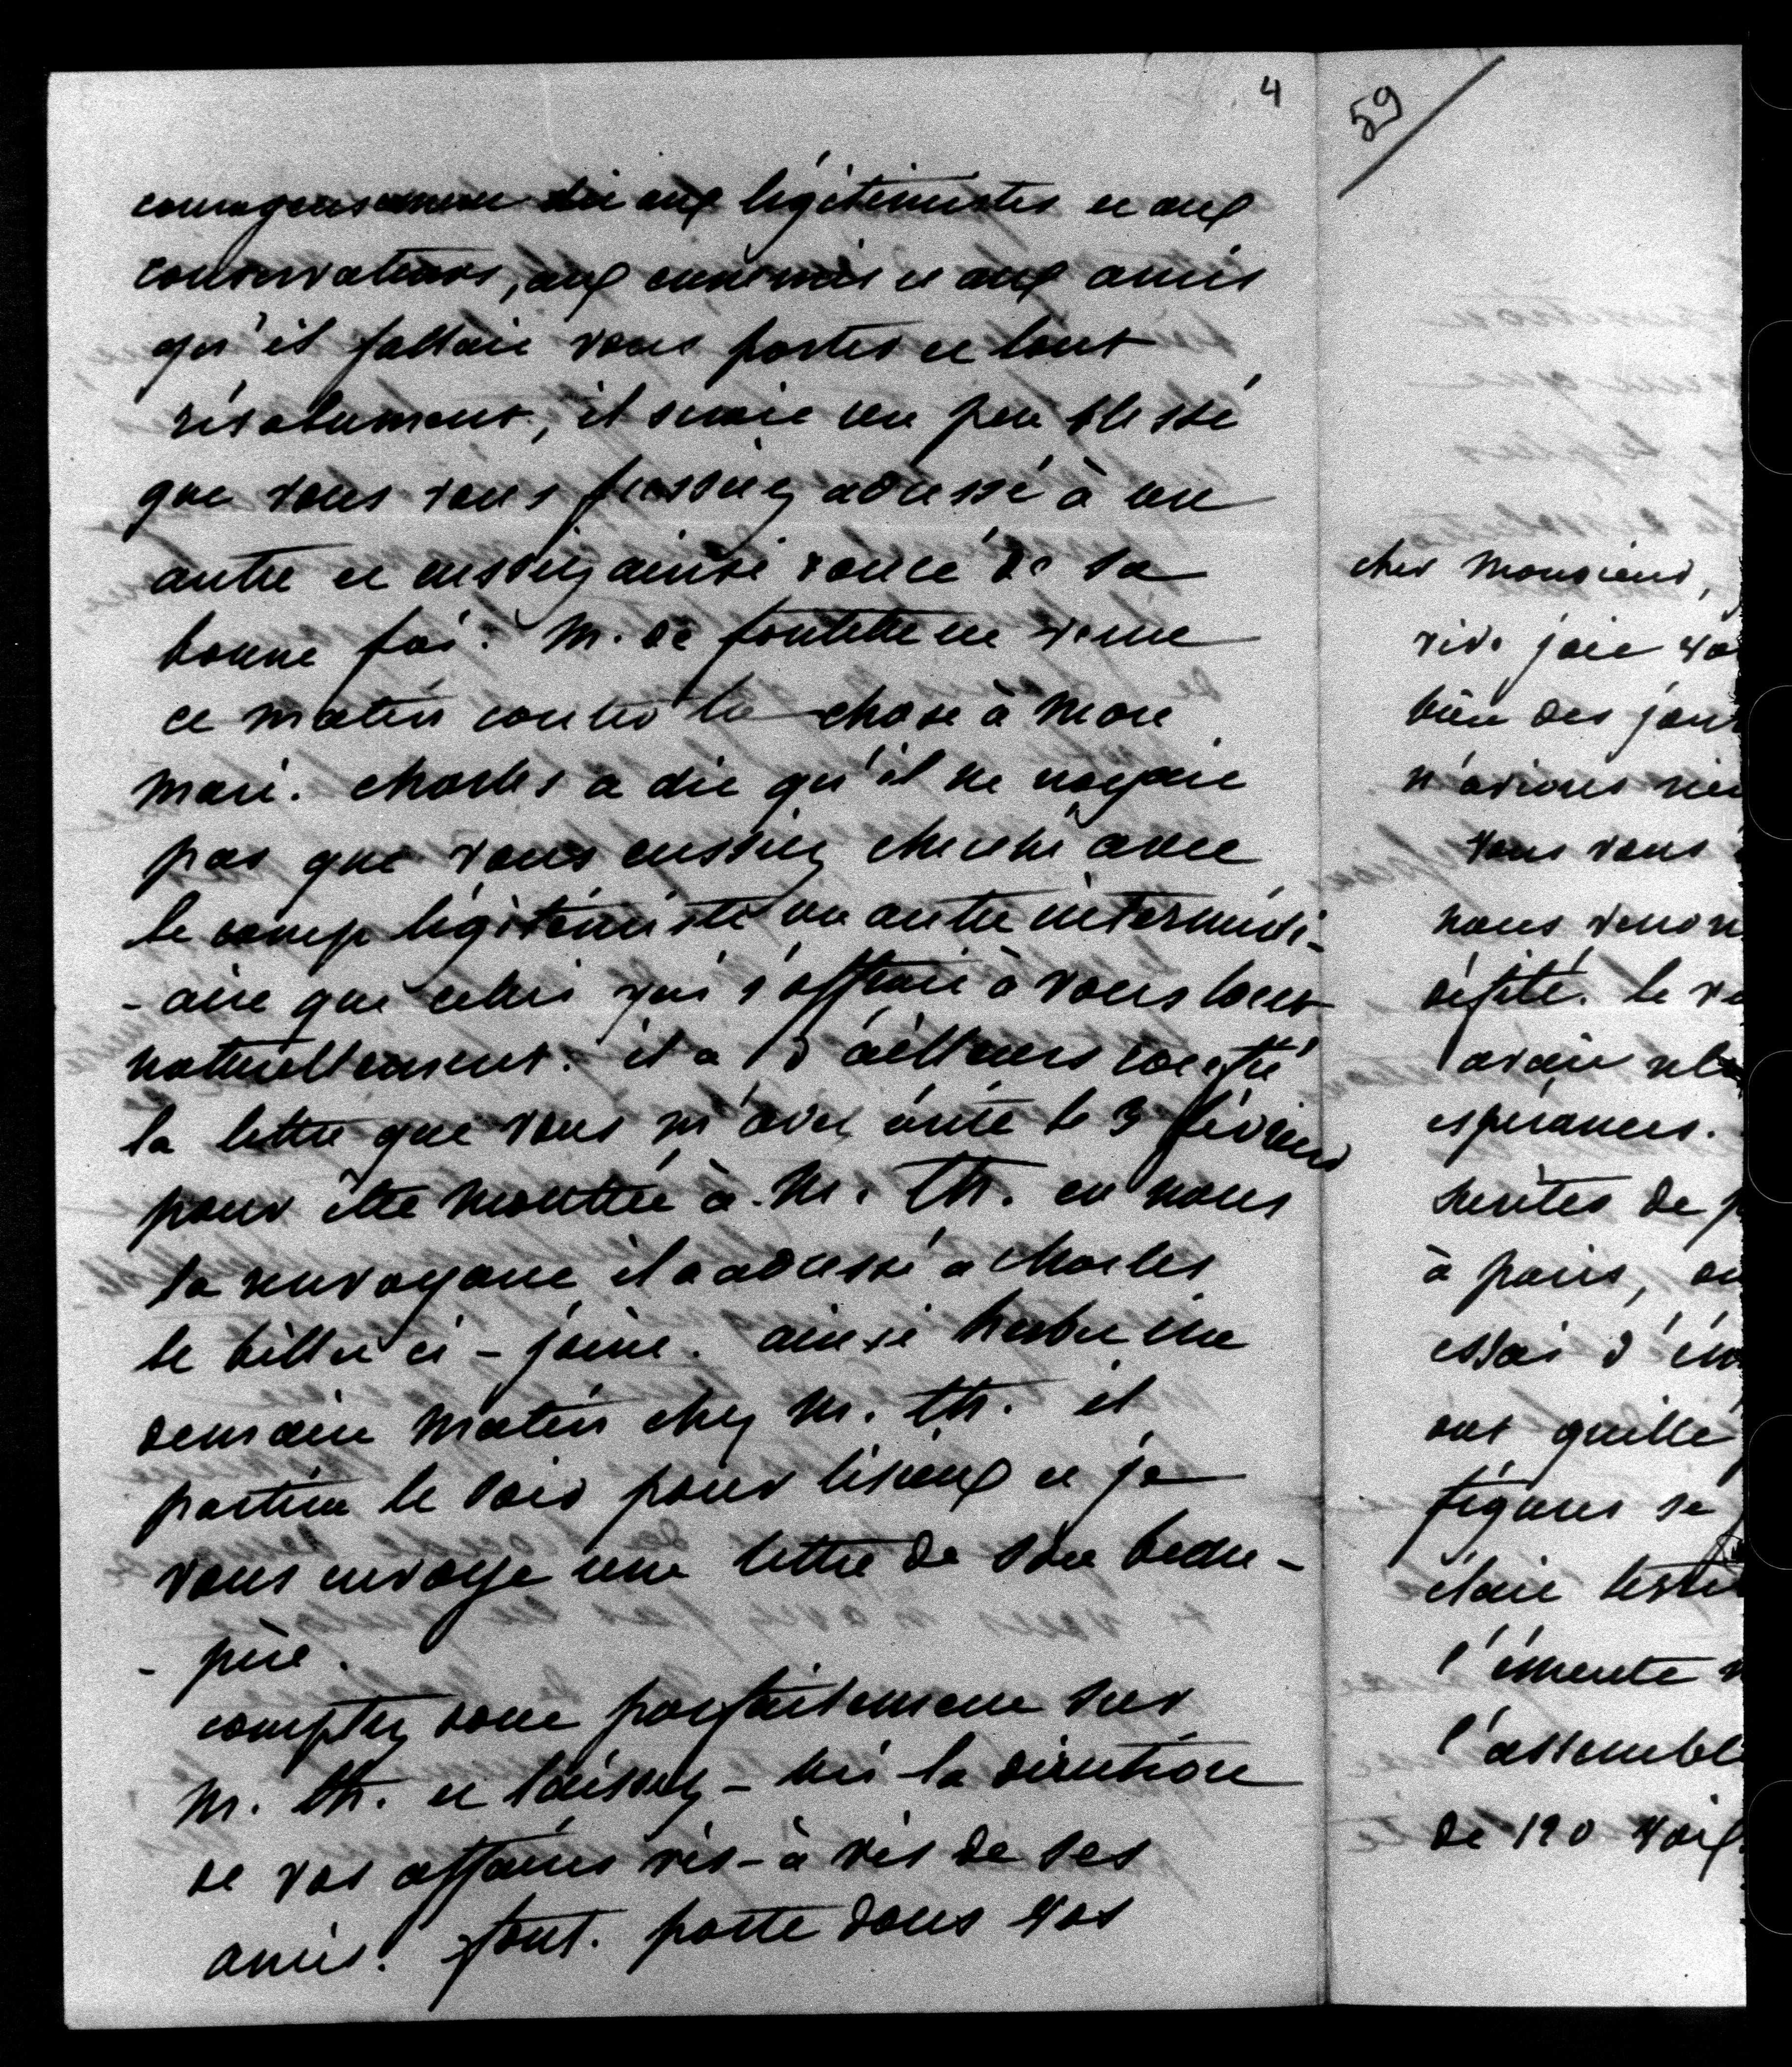 4
courageusement dit aux légitimistes et aux
conservateurs, aux ennemis et aux amis
qu'il fallait vous porter et tout
résolument, il serait un peu blessé
que vous vous fussiez adressé à un
autre et eussiez ainsi douté de sa
bonne foi. M. de fontette est venu
ce matin conter la chose à mon
mari. Charles a dit qu'il ne croyait
pas que vous eussiez cherché avec
le camp légitimiste un autre intermédi-
-aire que celui qui s'offrait à vous tout
naturellement. il a d'ailleurs
la lettre que vous m'avez écrite le 3 février
pour être montrée à M. Th. en nous
la renvoyant, il a adressé à Charles
le billet ci-joint. ainsi ira
demain matin chez M. Th. il
partira le soir pour lisieux et je
vous envoye une lettre de son beau-
-père.
comptez donc parfaitement sur
M. Th. et laissez-lui la direction
de vos affaires vis-à-vis de ses
amis. tout porte dans vos
59
cher Monsieur,
vive joie
bien des jour
n'avions rien
vous vous
nous venon
député. le
avait
espérances.
de
à paris,
essai d'ém
ont quitté
figures se
était
l'émeute
l'assemblé
de 190 voix